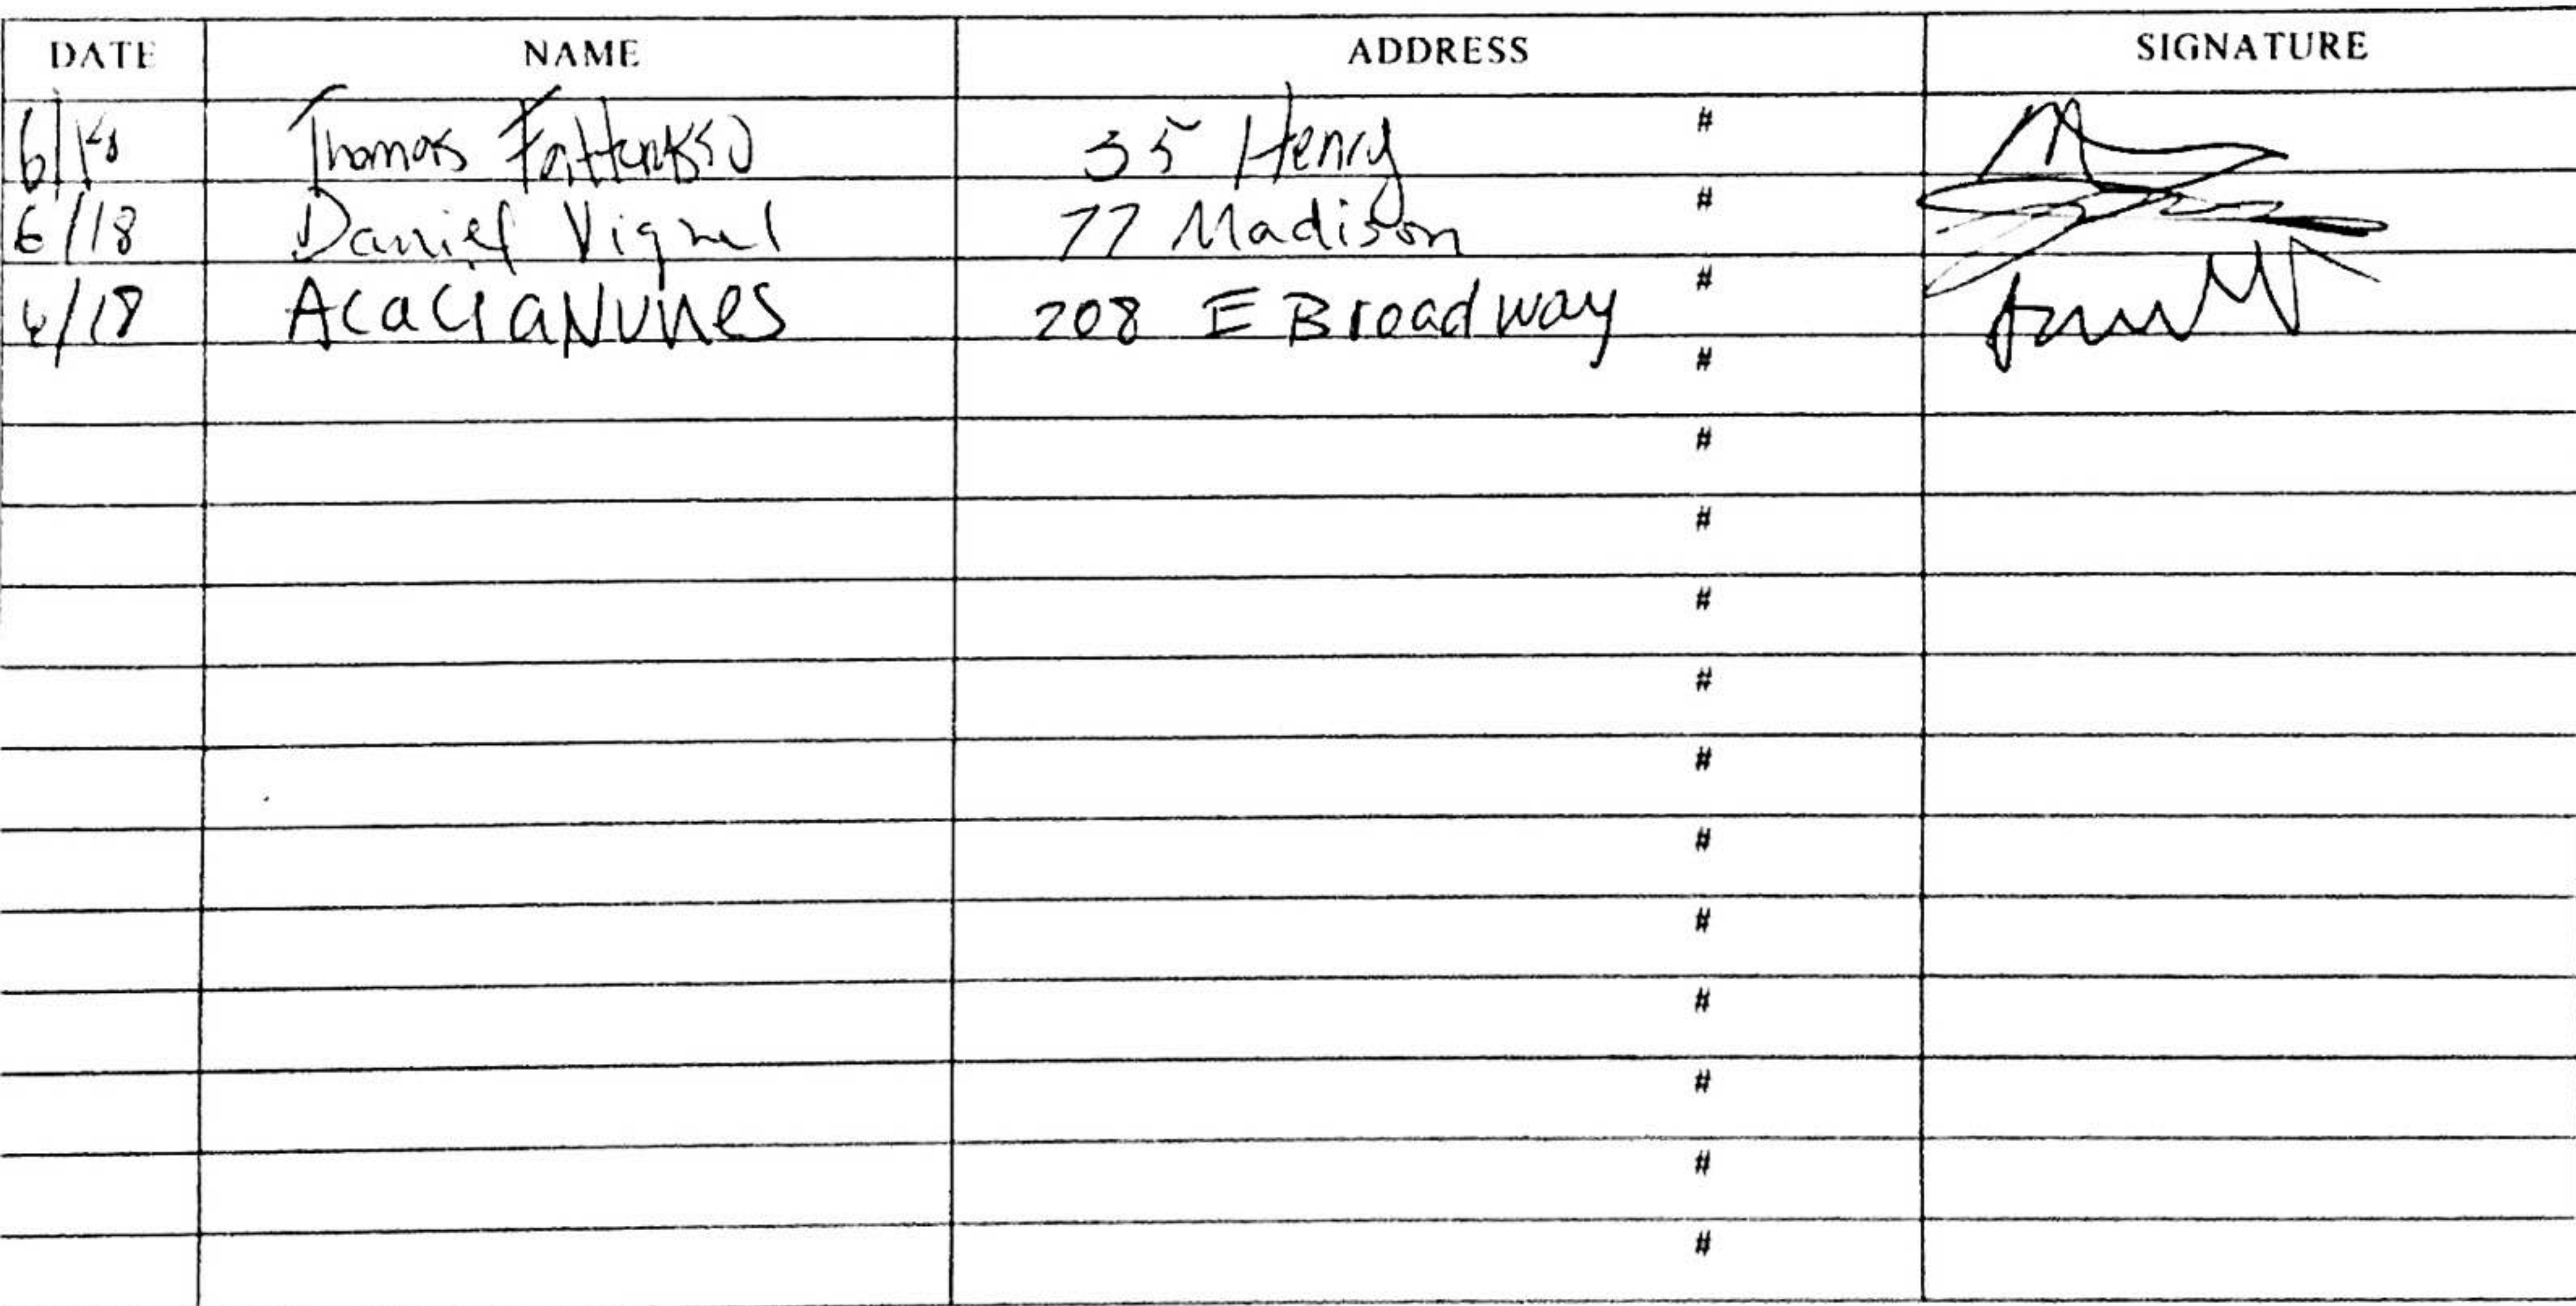 DATE NAME ADDRESS SIGNATURE
6/18 Thomas 35 Henry #
6/18 Daniel 77 Madison #
6/18 Acacia Nunes 208 E Broadway #
#
#
#
#
#
#
#
#
#
#
#
#